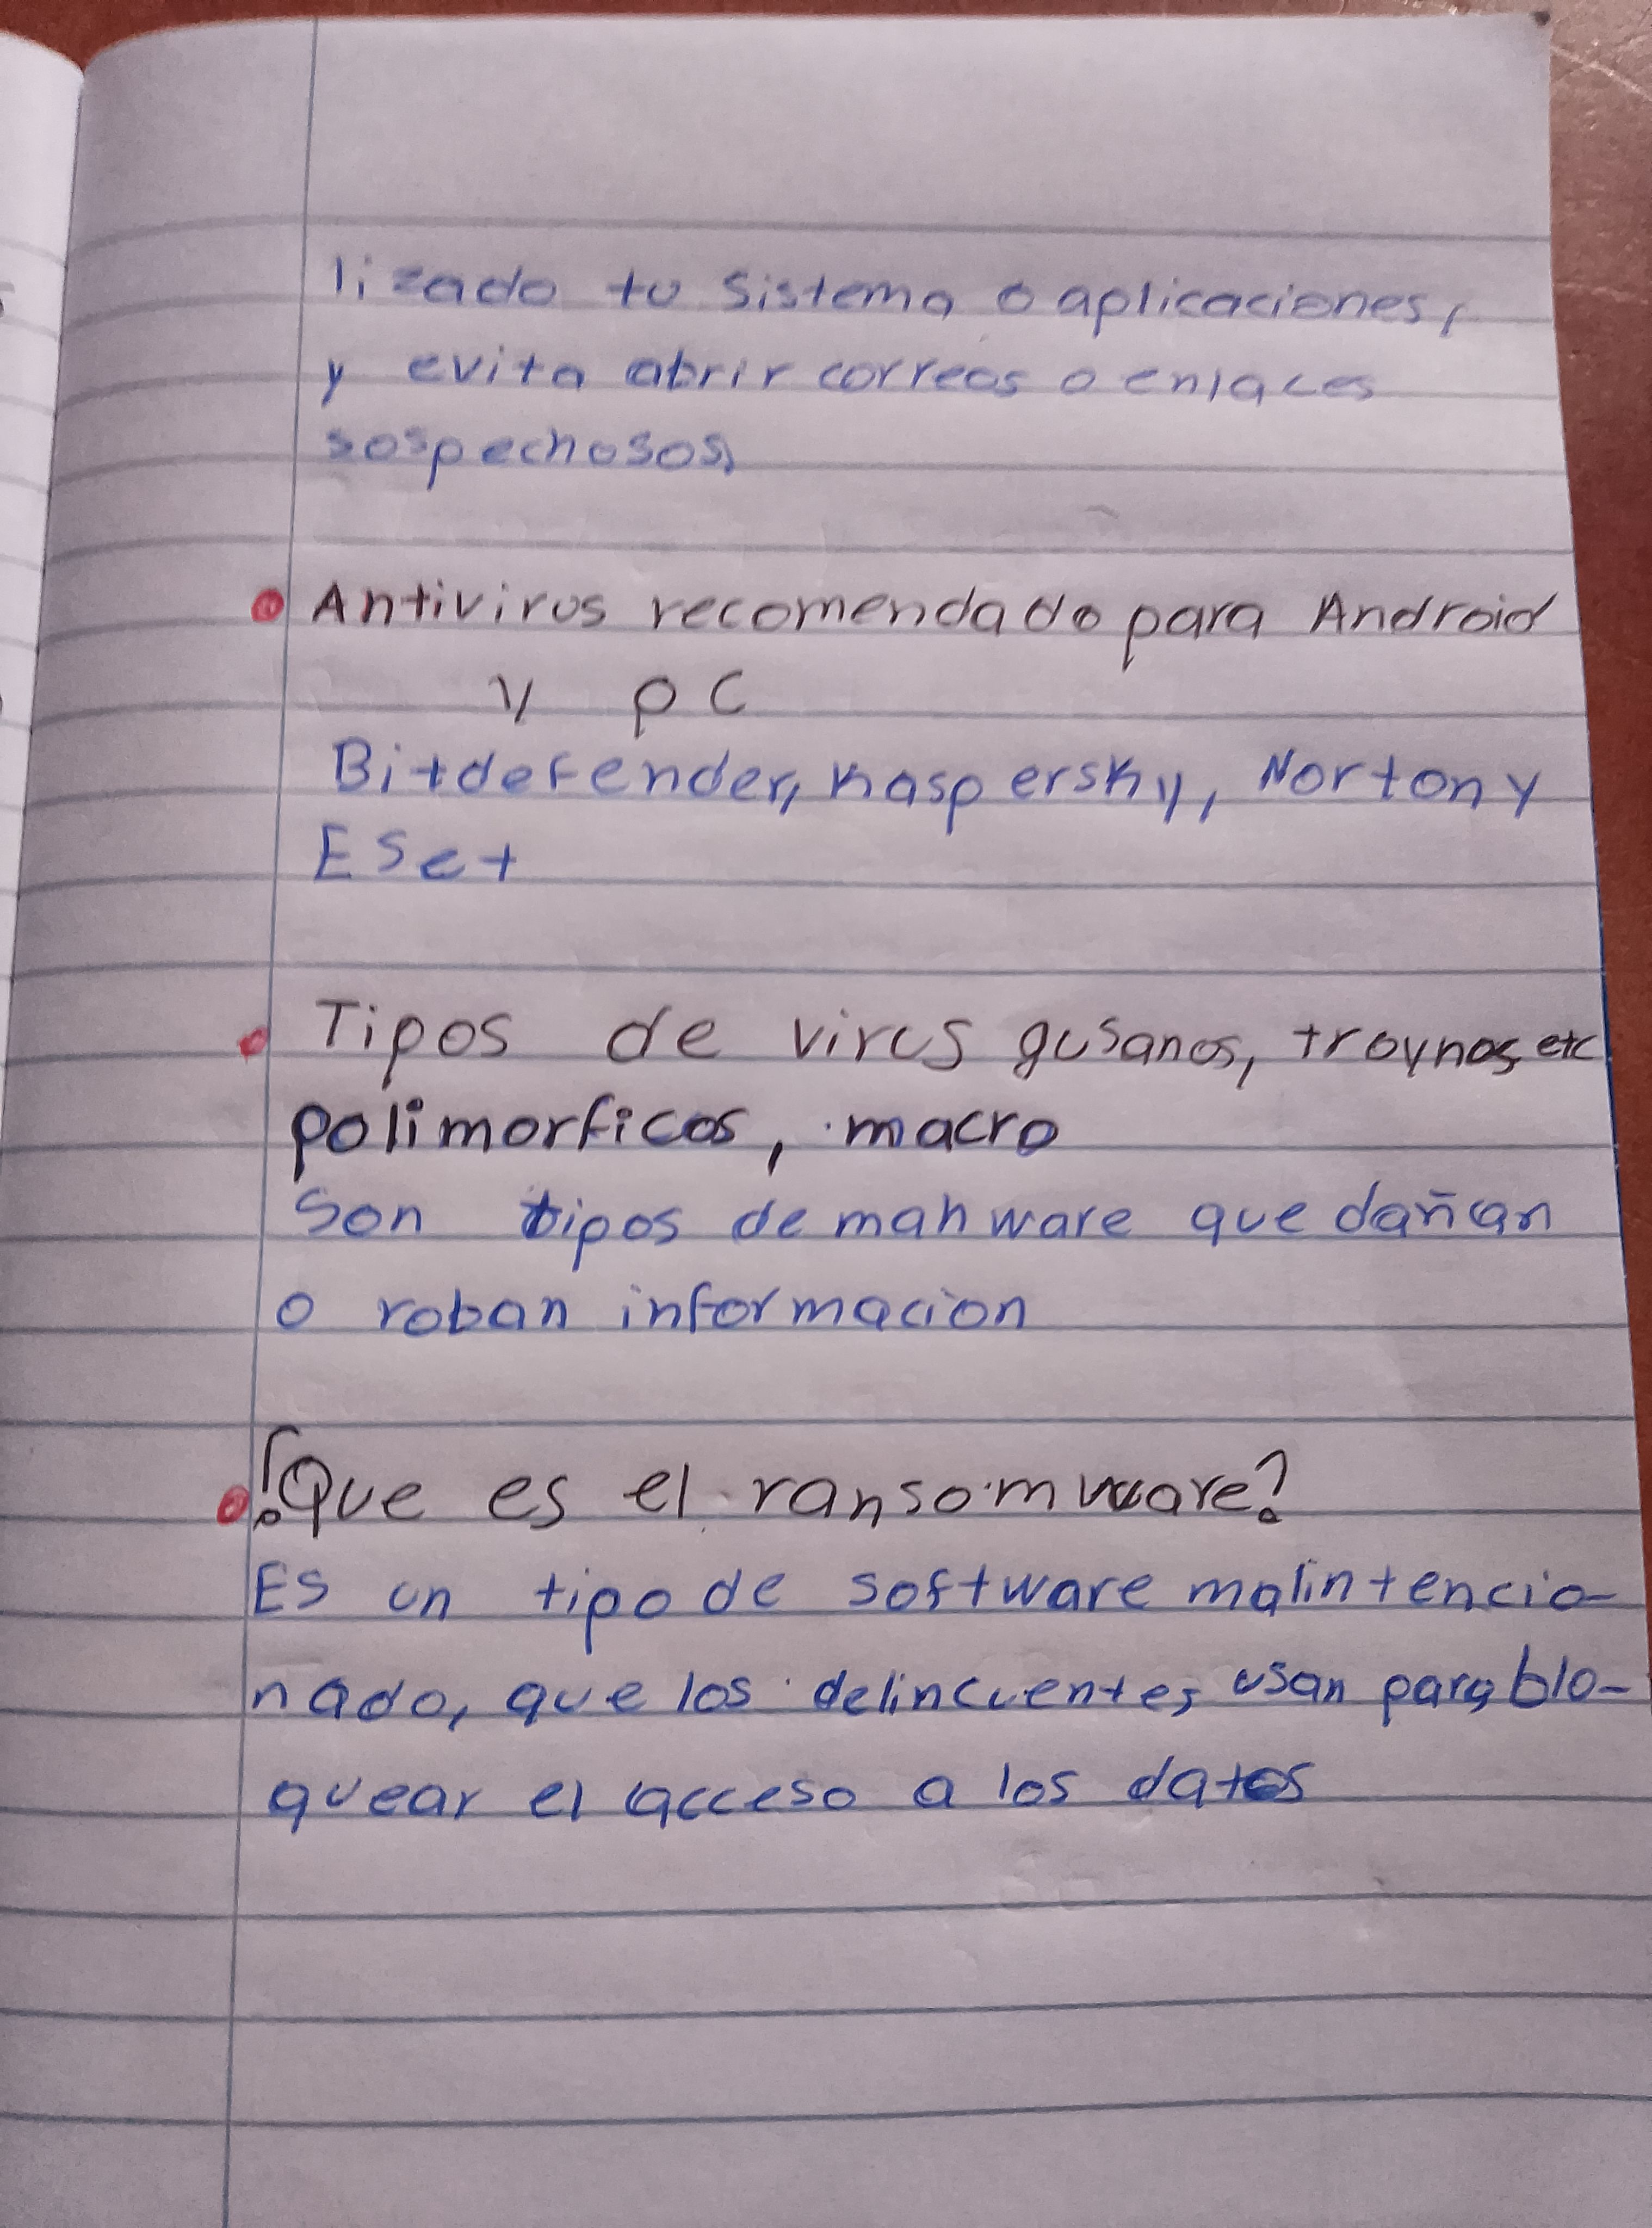 lizado tu Sistema o aplicaciones,
y evita abrir correos o enlaces
sospechosos,
Antivirus recomendado para Android
y pc
Bitdefender, Kaspersky, Norton y
ESet
Tipos de virus gusanos, troynos, etc
polimorficos, macro
Son tipos de mahware que dañan
o roban informacion
¿Que es el ransomware?
Es un tipo de software malintencio-
nado, que los delincuentes usan para blo-
quear el acceso a los datos